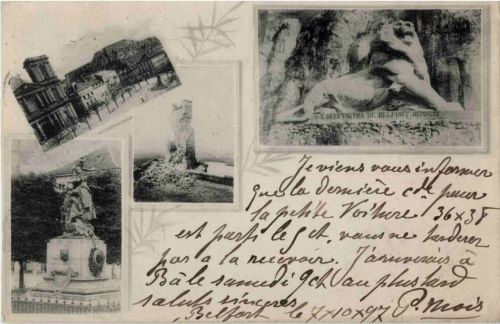 AUX DEFENSEURS DE BELFORT
Je viens vous informer
que la dernière pour
la petite Voiture 36x38
est partie le 5 ct, vous ne tarderez
pas à la recevoir. J'arriverais à
Bâle samedi 9 ct au plus tard
saluts sincères
Belfort le 7x10x97